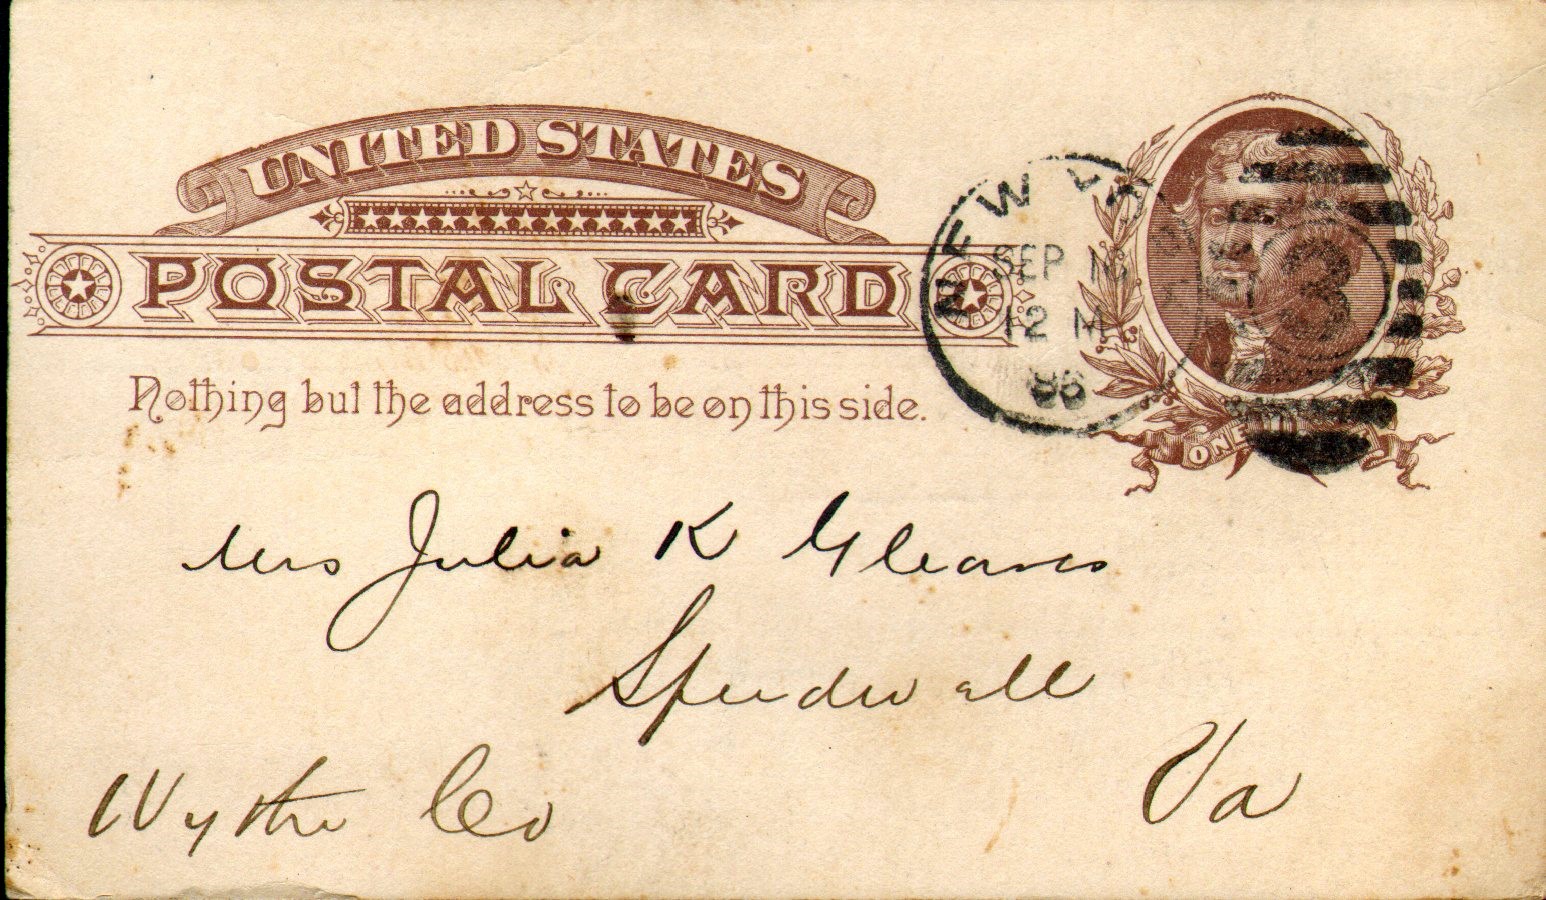 UNITED STATES
POSTAL CARD
Nothing but the address to be on this side.
NEW YO
SEP
12 M
86
3
ONE
Mrs Julia K Gleaves
Speedwell
Va
Wythe Co